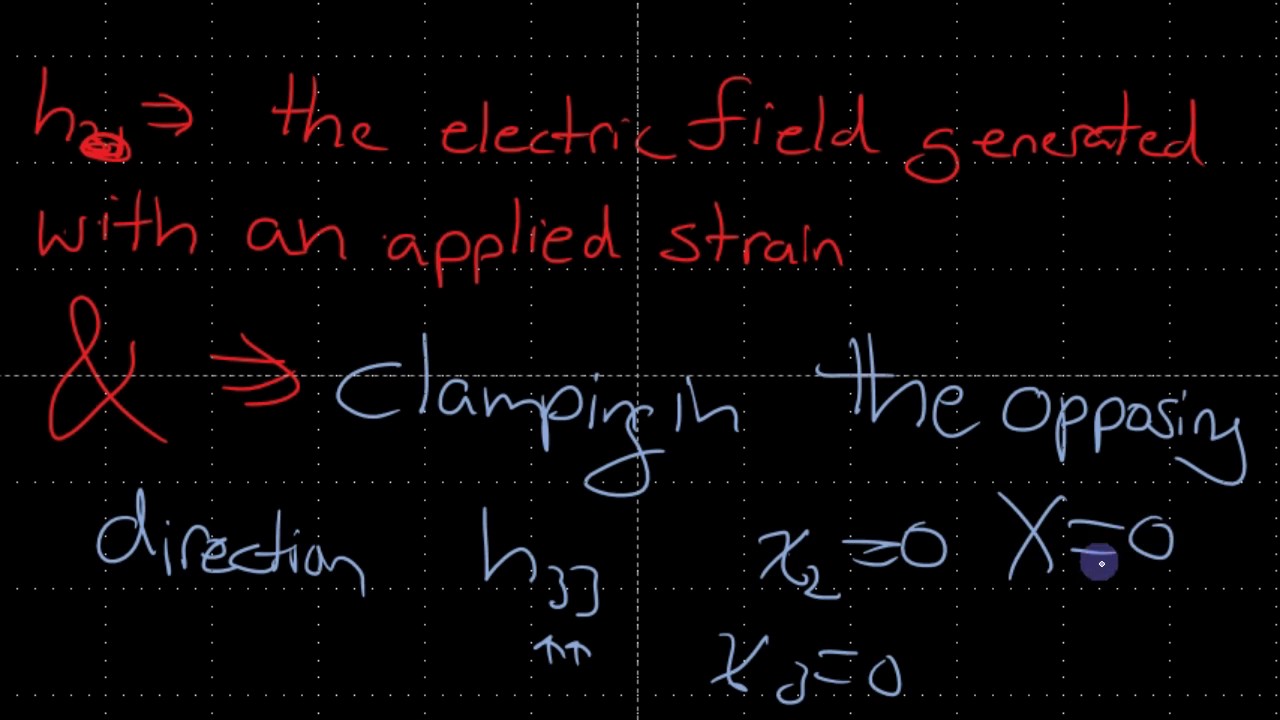 h ⇒ the electric field generated
with an applied strain
& ⇒ clamping in the opposing
direction h₃₃ x₂=0 X=0
↑↑ x₃=0